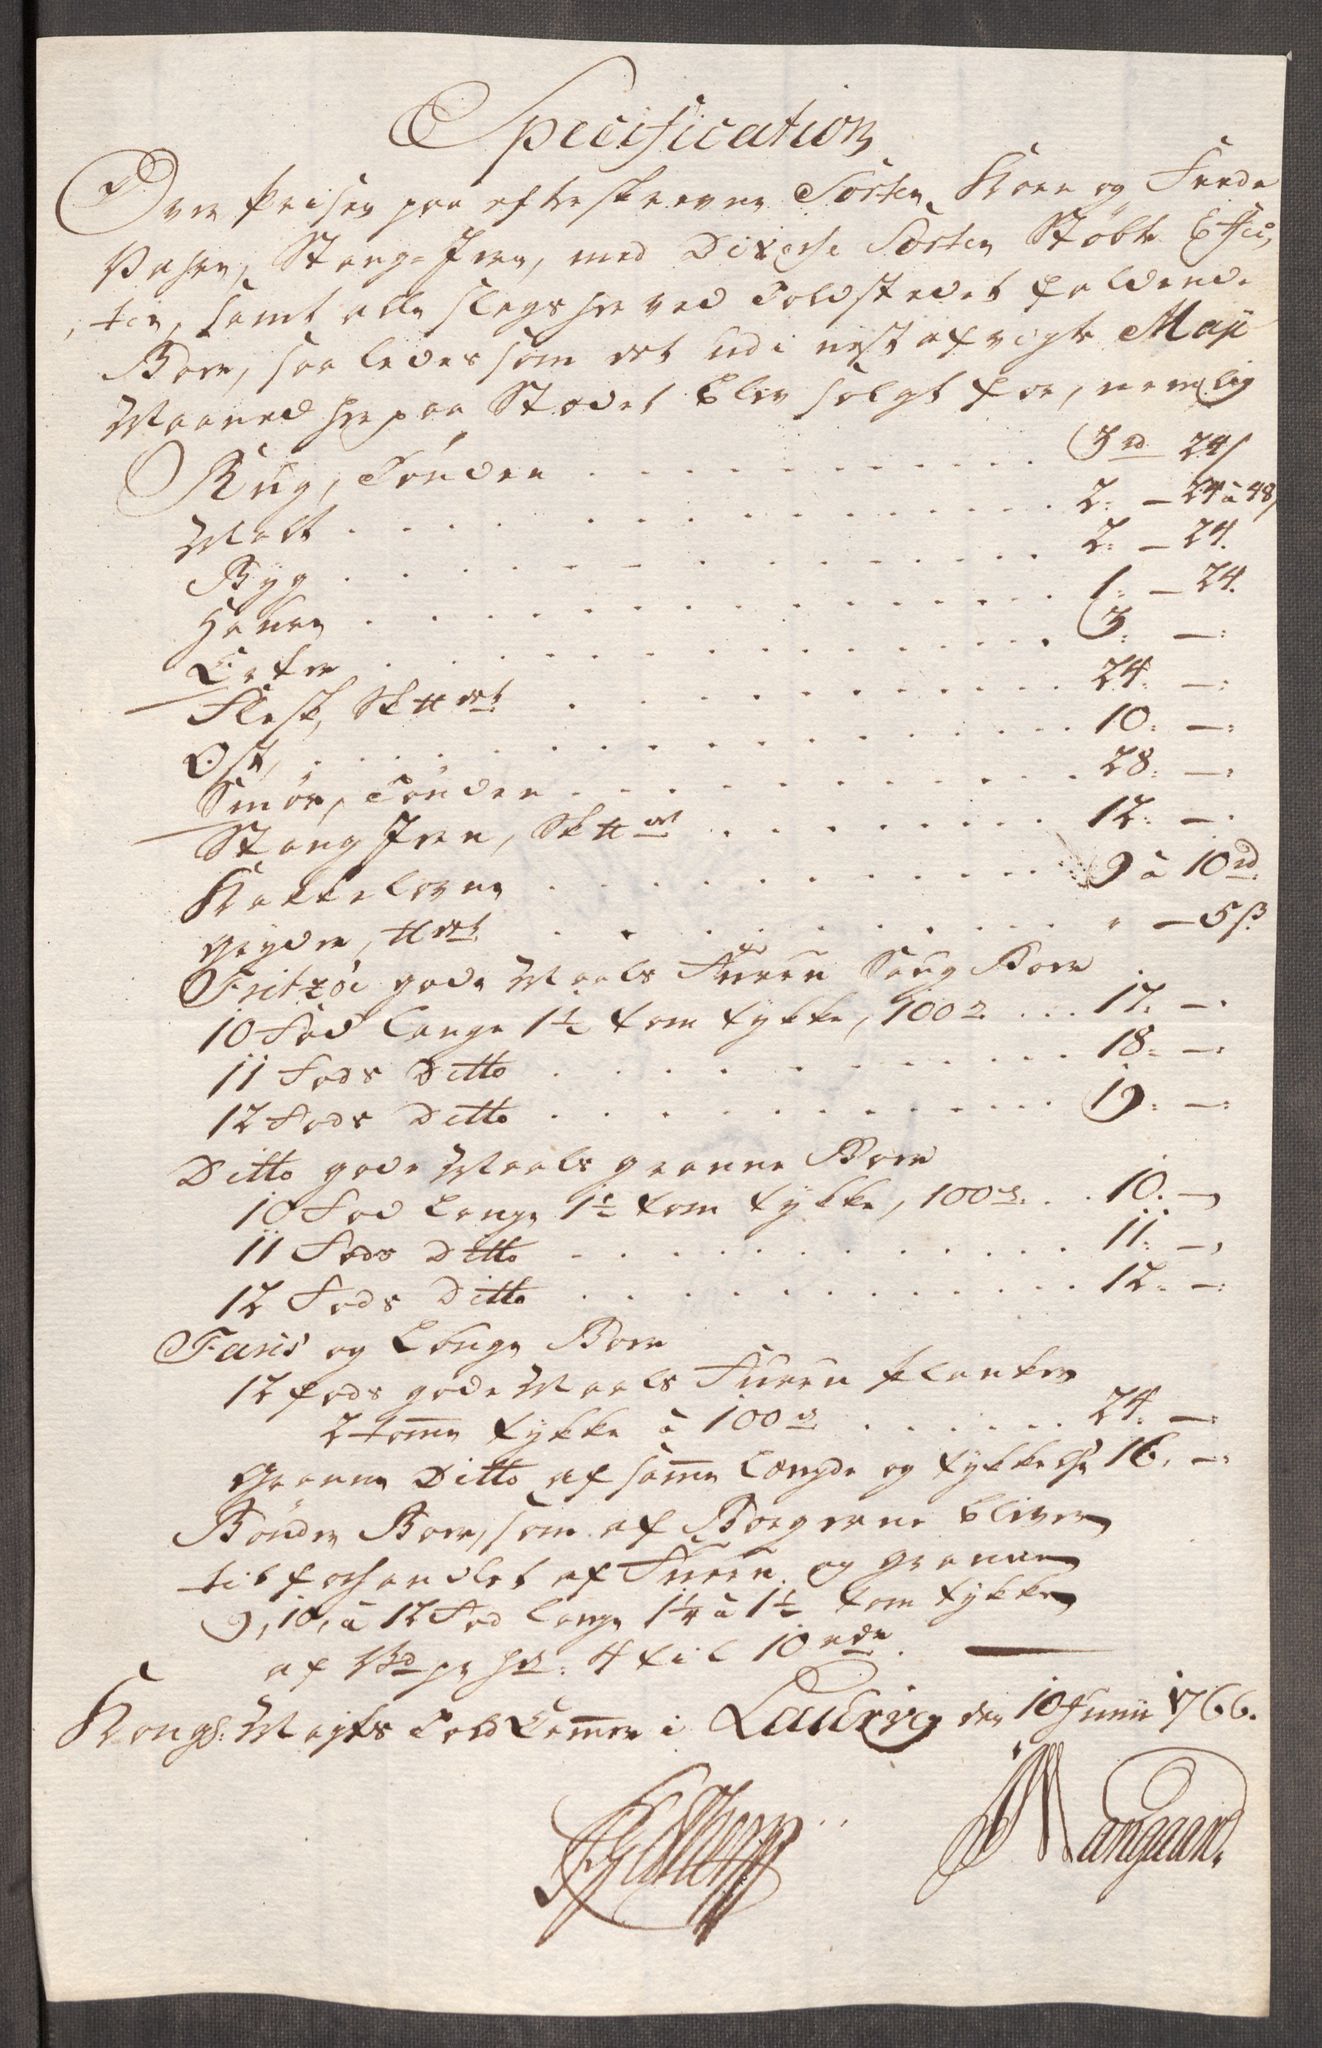 Specification
Over Prisen paa efterskrevne Sorter Korn og Feede
Vahre, Stang-Jern, med Diverse Sorter Støbte Effec,
,ter, samt alle slags her ved Toldstedet faldende
Bord, saaledes som det udi nest afvigte Maji
Maaned her paa Stædet blev solgt for, nemlig
Rug, Tönden . . . 3 rd 24 s
Malt . . . 2: — 24 à 48 s
Byg . . . 2: — 24.
Hafre . . . 1: — 24.
Erter . . . 3: —:
Flesk, Sk℔det . . . 24: —:
Ost, . . . 10: —:
Smör, Tönden . . . 28: —:
Stang Jern, Sk℔det . . . 12: —:
Kakkelovne . . . 9 à 10 rd
Gryder, ℔det . . . " — 5 ß
Fritzöe gode Maals Furru Saug Bord
10 Fod lange 1½ tom tykke, 100de . . . 17: —:
11 Fods Ditto . . . 18: —:
12 Fods Ditto . . . 19: —:
Ditto gode Maals granne Bord
10 Fod lange 1½ tom tykke, 100de . . . 10: —,
11 Fods Ditto . . . 11: —,
12 Fods Ditto . . . 12: —:
Faris og Lönge Bord
12 fods gode Maals Furru Planker
2 tom̄e tykke à 100de . . . 24: —:
Granne Ditto af sam̄e Længde og tykkelse 16. —:
Bönder Bord, som af Borgerne bliver
tilforhandlet af Furru og granne
9, 10, à 12 Fod lange 1¼ à 1½ tom tykke
af Værd pr Hd: 4 til 10 rdr.
Kongl: Mayts Told Cam̄er i Laurvig den 10 Junii 1766.
Mangaard.